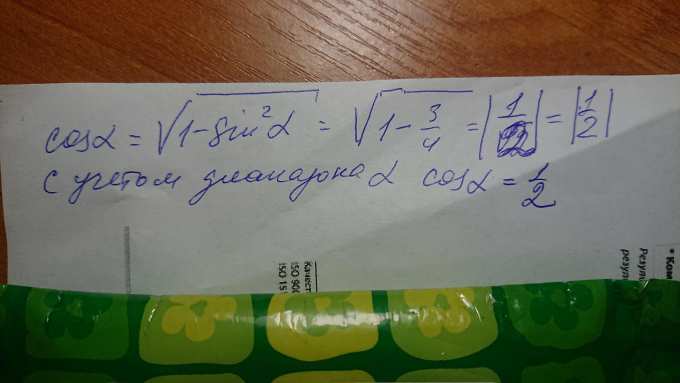 cosα = √1-sin²α = √1-3/4 = |1/2| = |1/2|
с учетом диапазона α cosα = 1/2
Качест
ISO 900
ISO 15
* Ком
Резул
резул